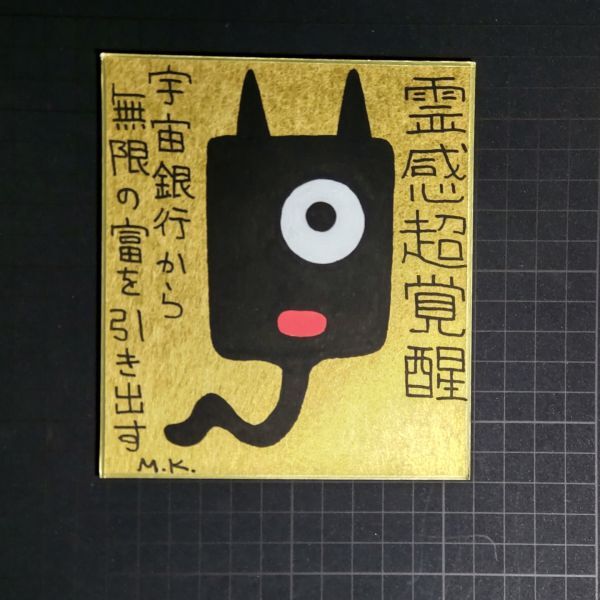 霊感超覚醒
宇宙銀行から
無限の富を引き出す
M.K.